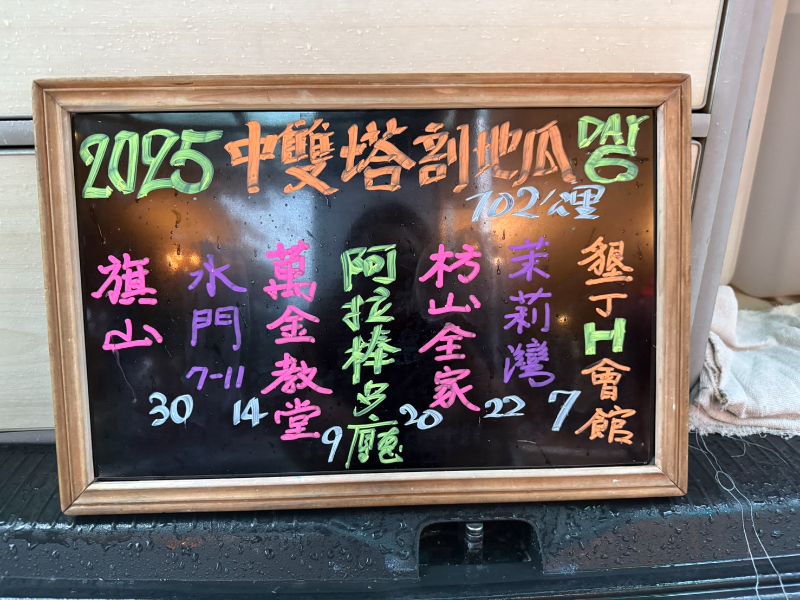 2025 中雙塔剖地瓜 DAY 6
102公里
旗山
30
水門 7-11
14
萬金教堂
9
阿拉棒多廳
20
枋山全家
22
茉莉灣
7
墾丁H會館